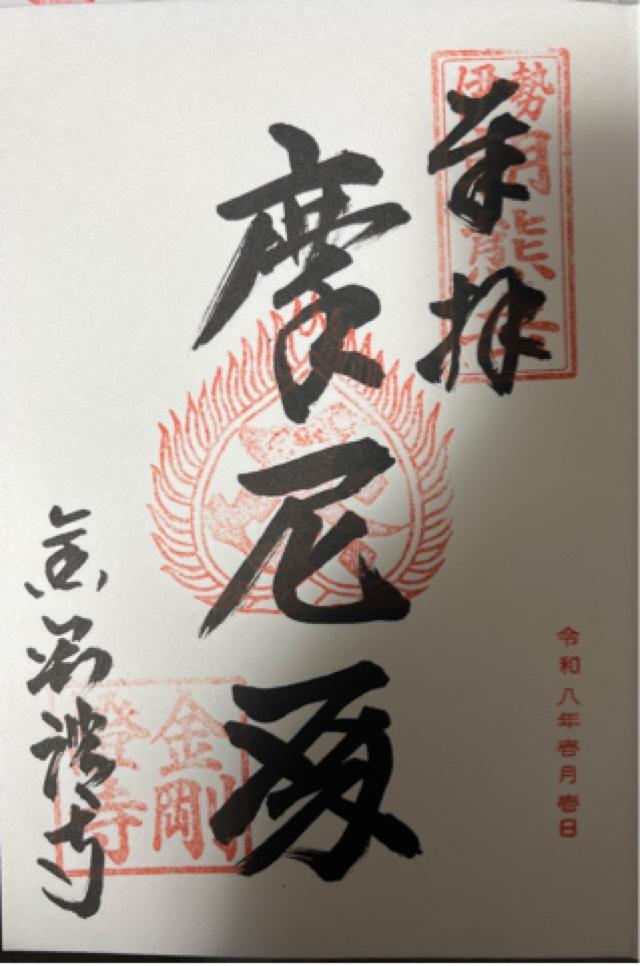 奉拝
伊勢
朝熊
摩尼殿
金剛證寺
金剛
證寺
令和八年壱月壱日